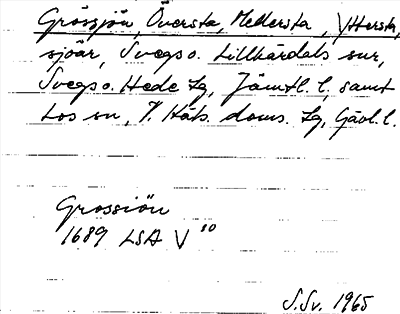 Grössjön, Översta, Mellersta, Yttersta,
sjöar, Svegs o. Lillhärdals snr,
Svegs o. Hede tg, Jämtl. l, samt
Los sn, V. Häls. doms. tg, Gävl. l.
Grossiön
1689 LSA V 10
S.Sv. 1965